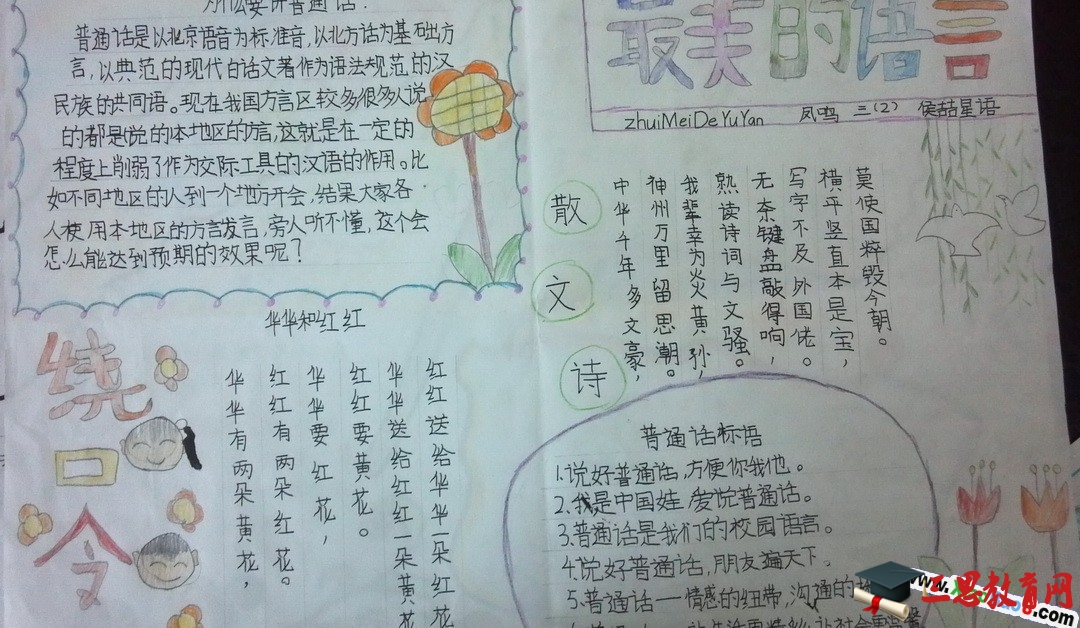 为什么要讲普通话?
普通话是以北京语音为标准音,以北方话为基础方
言,以典范的现代白话文著作为语法规范的汉
民族的共同语。现在我国方言区较多很多人说
的都是说的本地区的方言,这就是在一定的
程度上削弱了作为交际工具的汉语的作用。比
如不同地区的人到一个地方开会,结果大家各
人使用本地区的方言发言,旁人听不懂,这个会
怎么能达到预期的效果呢?
最美的语言
zhuiMeiDeYuYan 凤鸣 三(2) 侯喆星语
散文诗
中华千年多文豪,
神州万里留思潮。
我辈幸为炎黄孙,
熟读诗词与文骚。
无奈键盘敲得响,
写字不及外国佬。
横平竖直本是宝,
莫使国粹毁今朝。
绕口令
华华和红红
华华有两朵黄花,
红红有两朵红花。
华华要红花,
红红要黄花。
华华送给红红一朵黄花
红红送给华华一朵红花
普通话标语
1.说好普通话,方便你我他。
2.我是中国娃,爱说普通话。
3.普通话是我们的校园语言。
4.说好普通话,朋友遍天下。
5.普通话——情感的纽带,沟通的
三思教育网
www.
.com